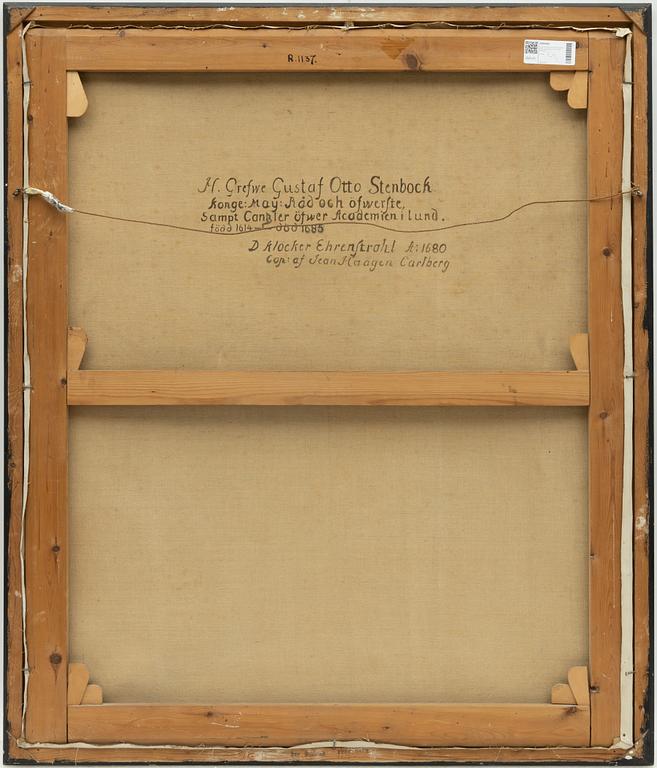 R.1137.
H. Grefwe Gustaf Otto Stenbock
Konge: May: Råd och öfwerste,
Sampt Cantzler öfwer Academien i Lund.
född 1614 — död 1685
D Klöcker Ehrenstrahl A: 1680
Cop: af Jean Haagen Carlberg